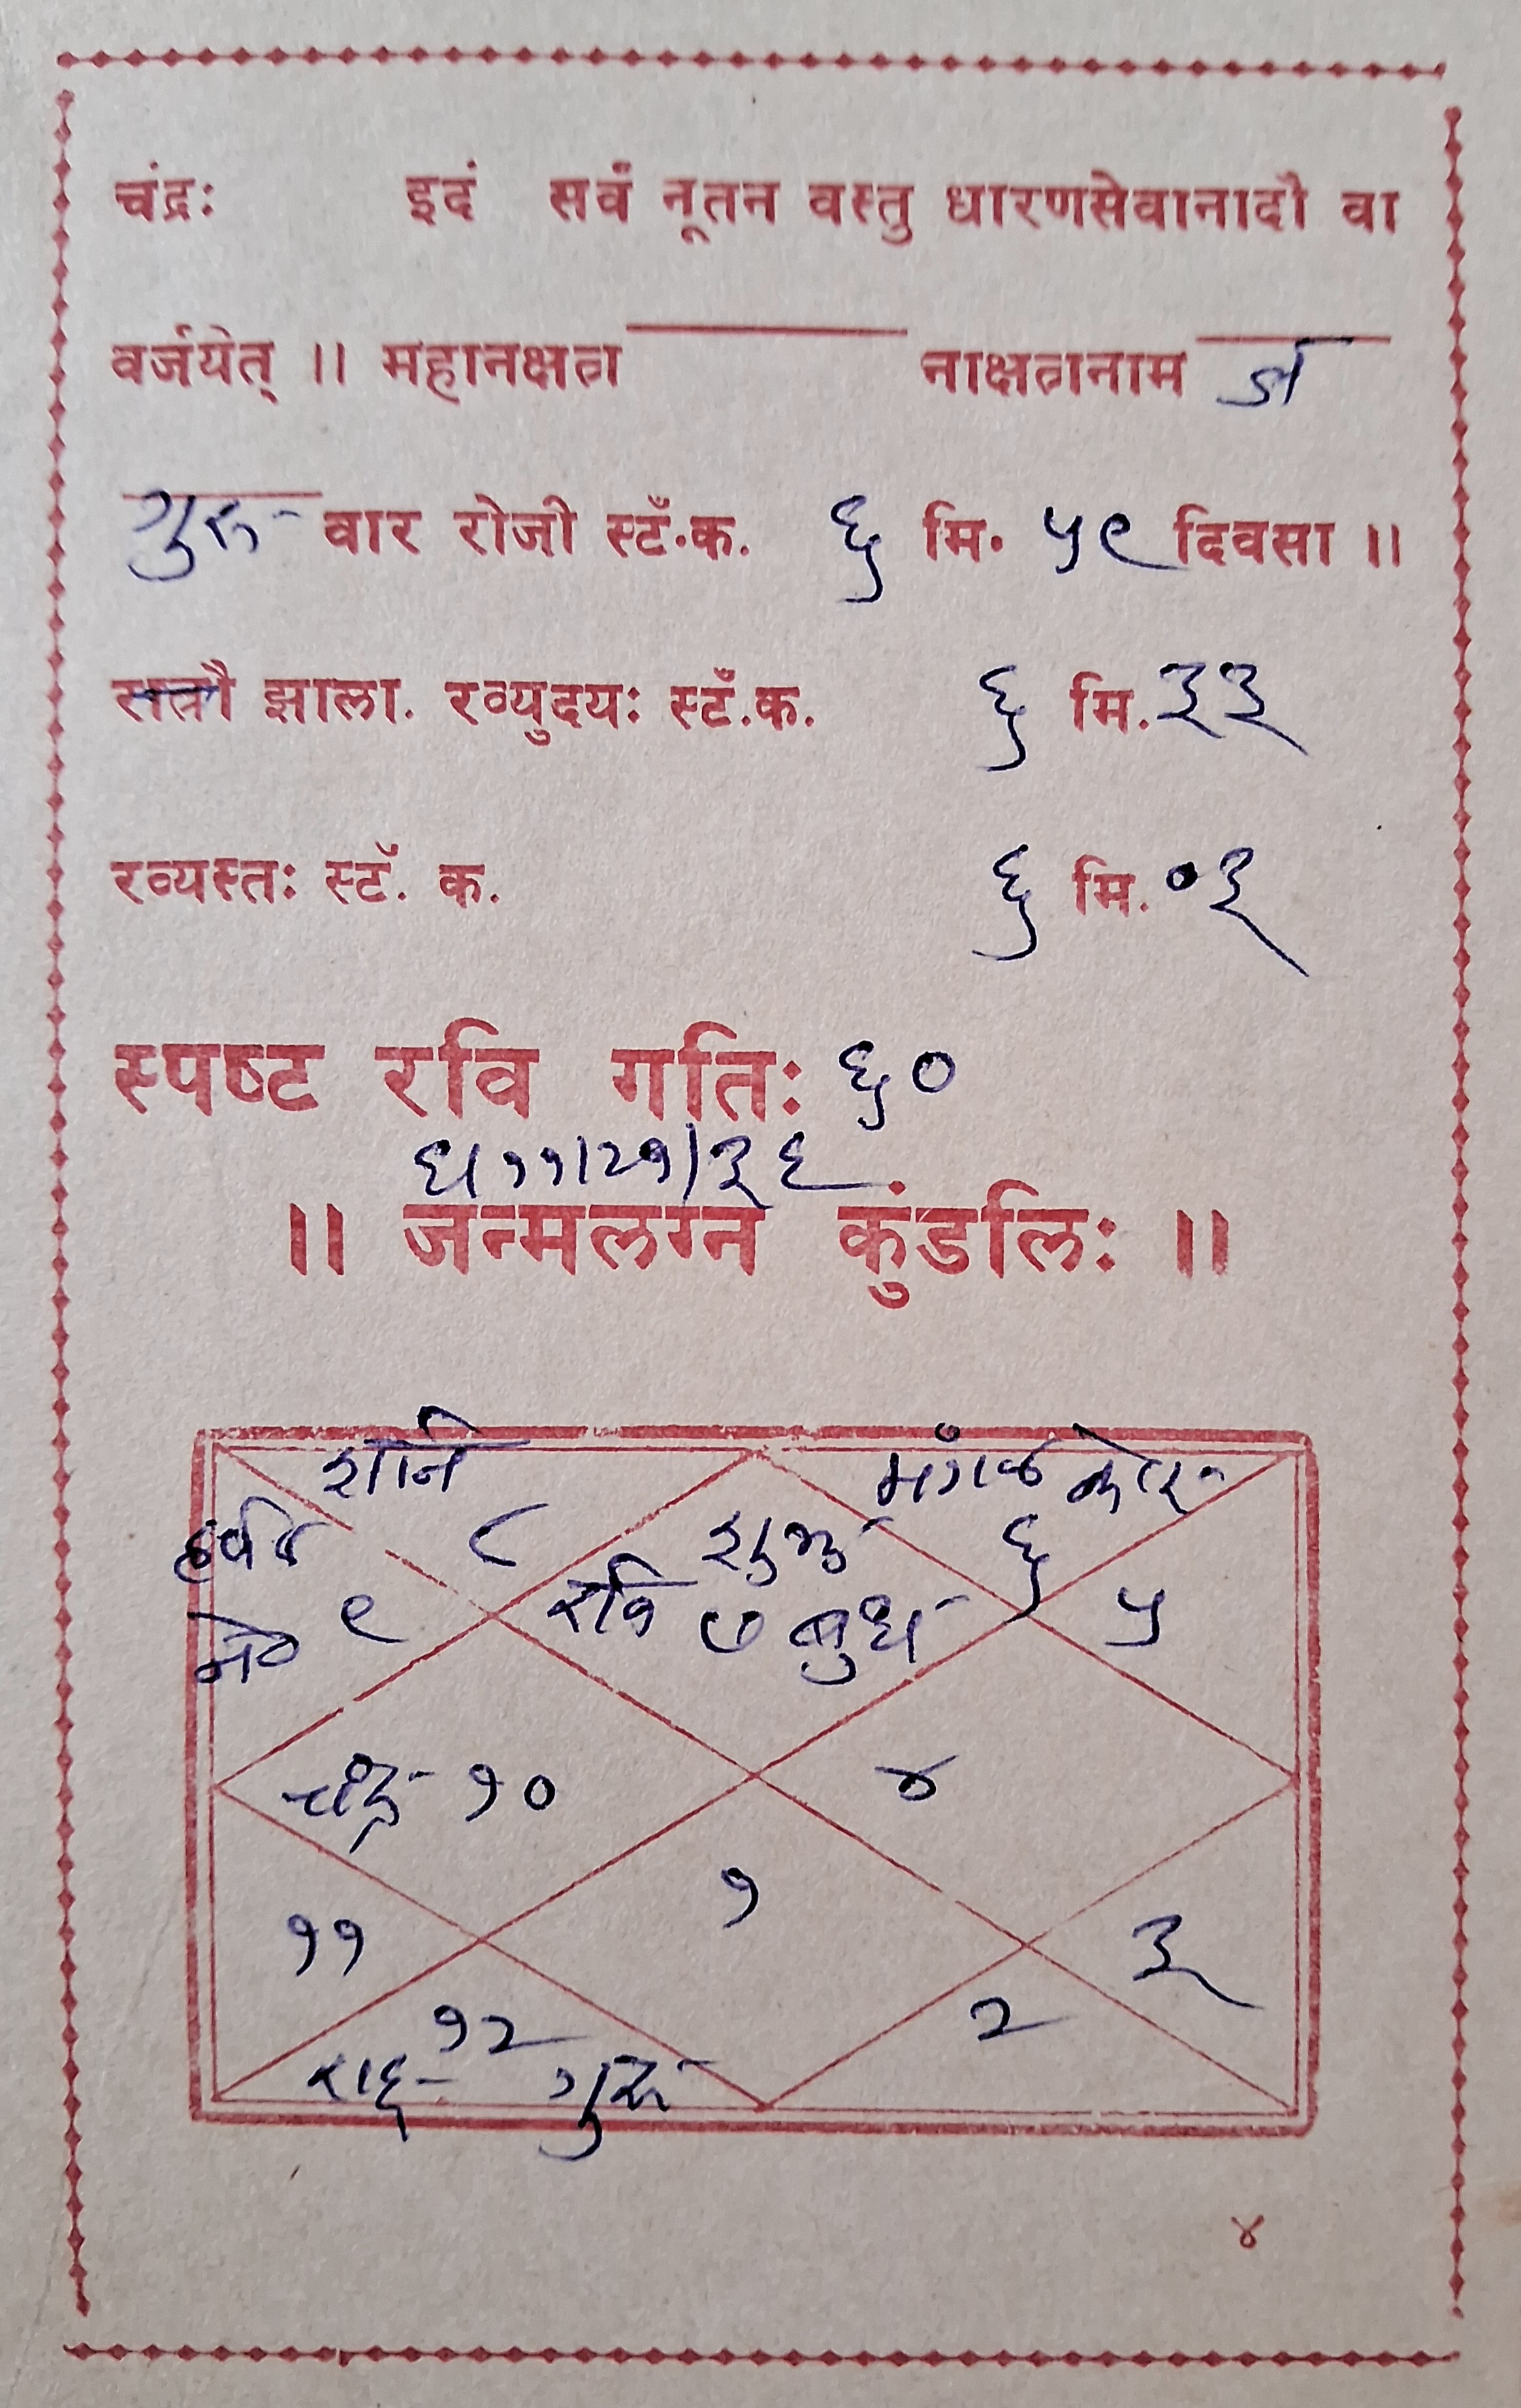 चंद्रः इदं सर्वं नूतन वस्तु धारणसेवानादौ वा
वर्जयेत् ।। महानक्षत्र नाक्षत्रनाम
गुरु वार रोजी स्टँ.क. ६ मि. ५९ दिवसा ।।
रात्रौ झाला. रव्युदयः स्टँ.क. ६ मि. ३३
रव्यस्तः स्टॅ. क. ६ मि. ०३
स्पष्ट रवि गतिः ६०
६।११।२१।३६
।। जन्मलग्न कुंडलिः ।।
शनि मंगळ केतु
हर्षल ८ शुक्र ६
नेप ९ रवि ७ बुध ५
चंद्र १० ४
१
११ ३
१२ २
राहु गुरु
४